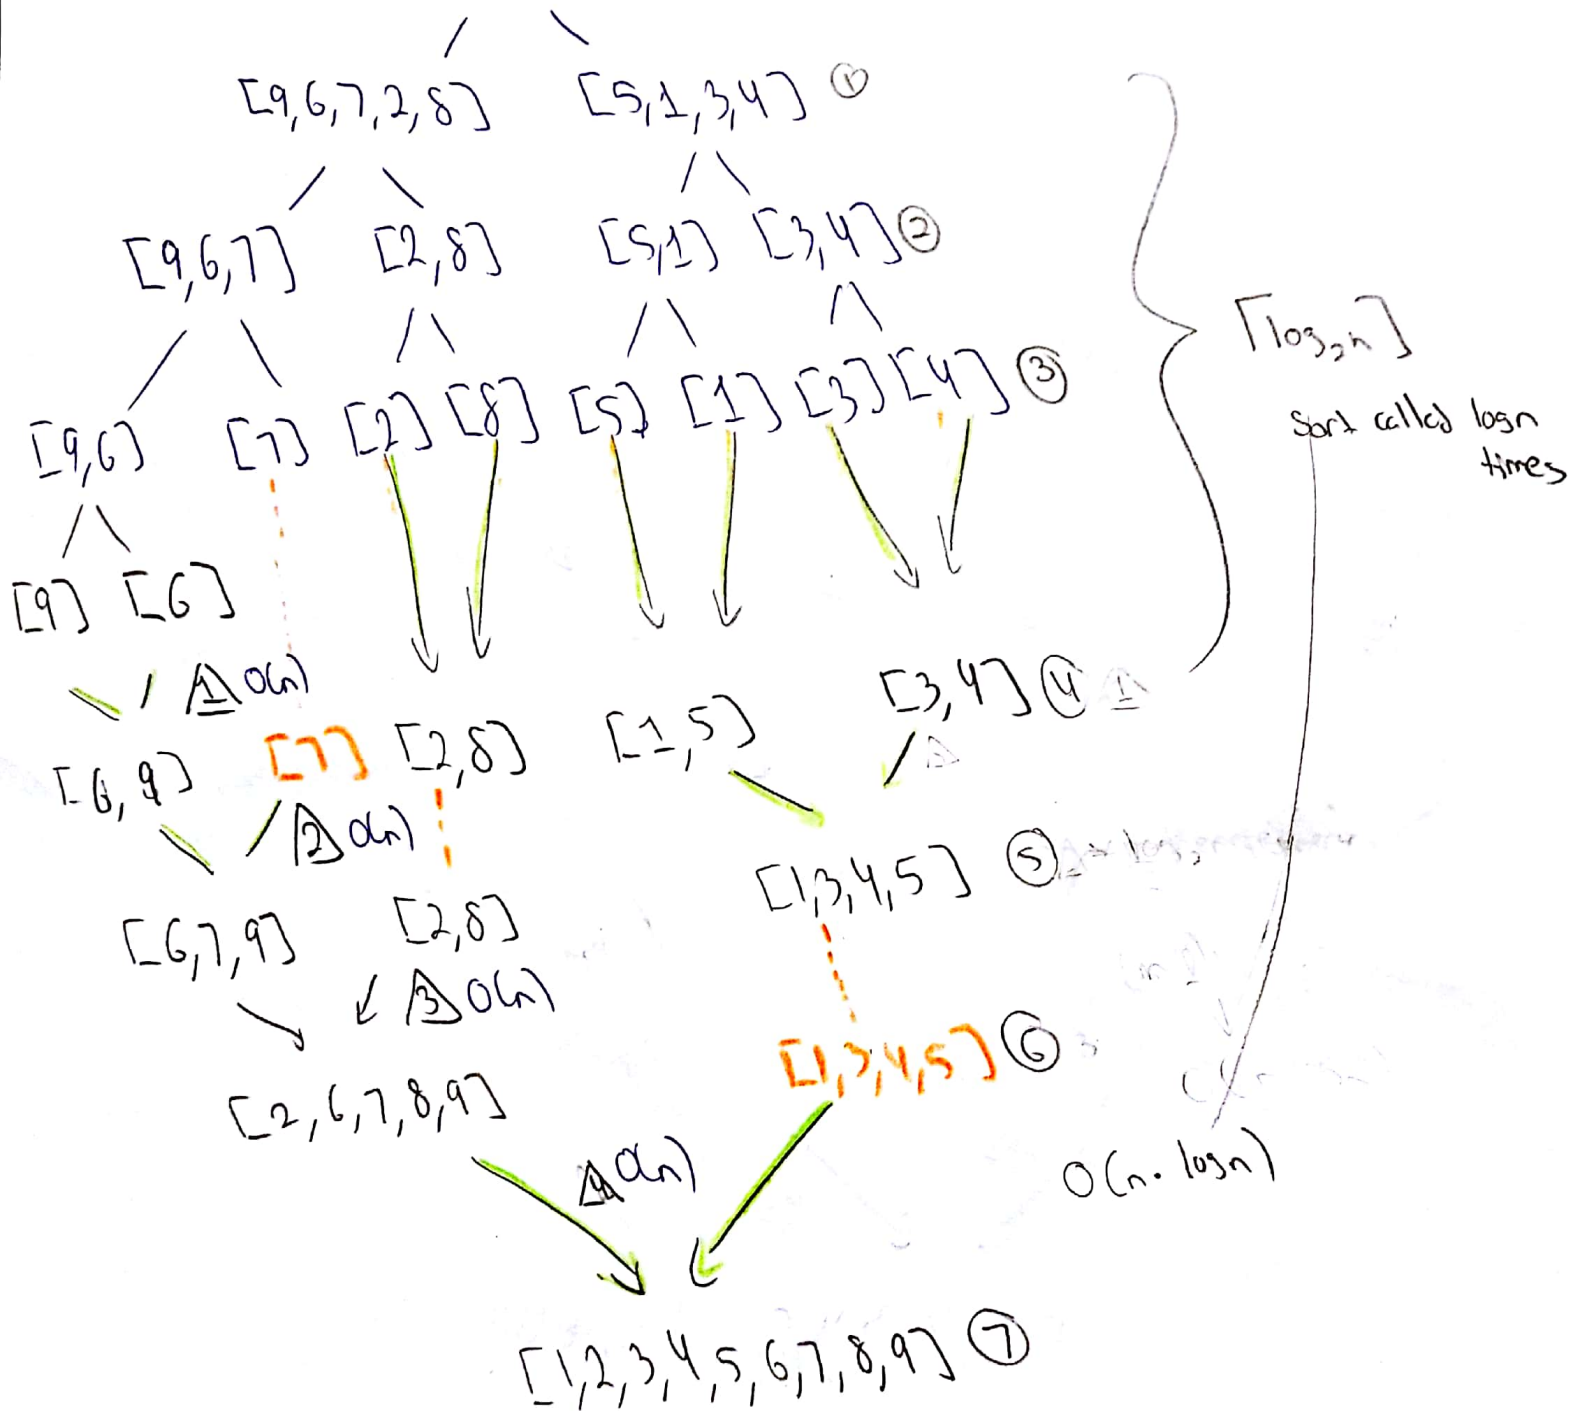 [9,6,7,2,8] [5,1,3,4] 1
[9,6,7] [2,8] [5,1] [3,4] 2
⌈log₂n⌉
[9,6] [7] [2] [8] [5] [1] [3] [4] 3
Sort called logn
times
[9] [6]
1 O(n)
[3,4] 4 1
[6,9] [7] [2,8] [1,5]
2
2 O(n)
[1,3,4,5] 5
[6,7,9] [2,8]
3 O(n)
[1,3,4,5] 6
[2,6,7,8,9]
4 O(n)
O(n. logn)
[1,2,3,4,5,6,7,8,9] 7